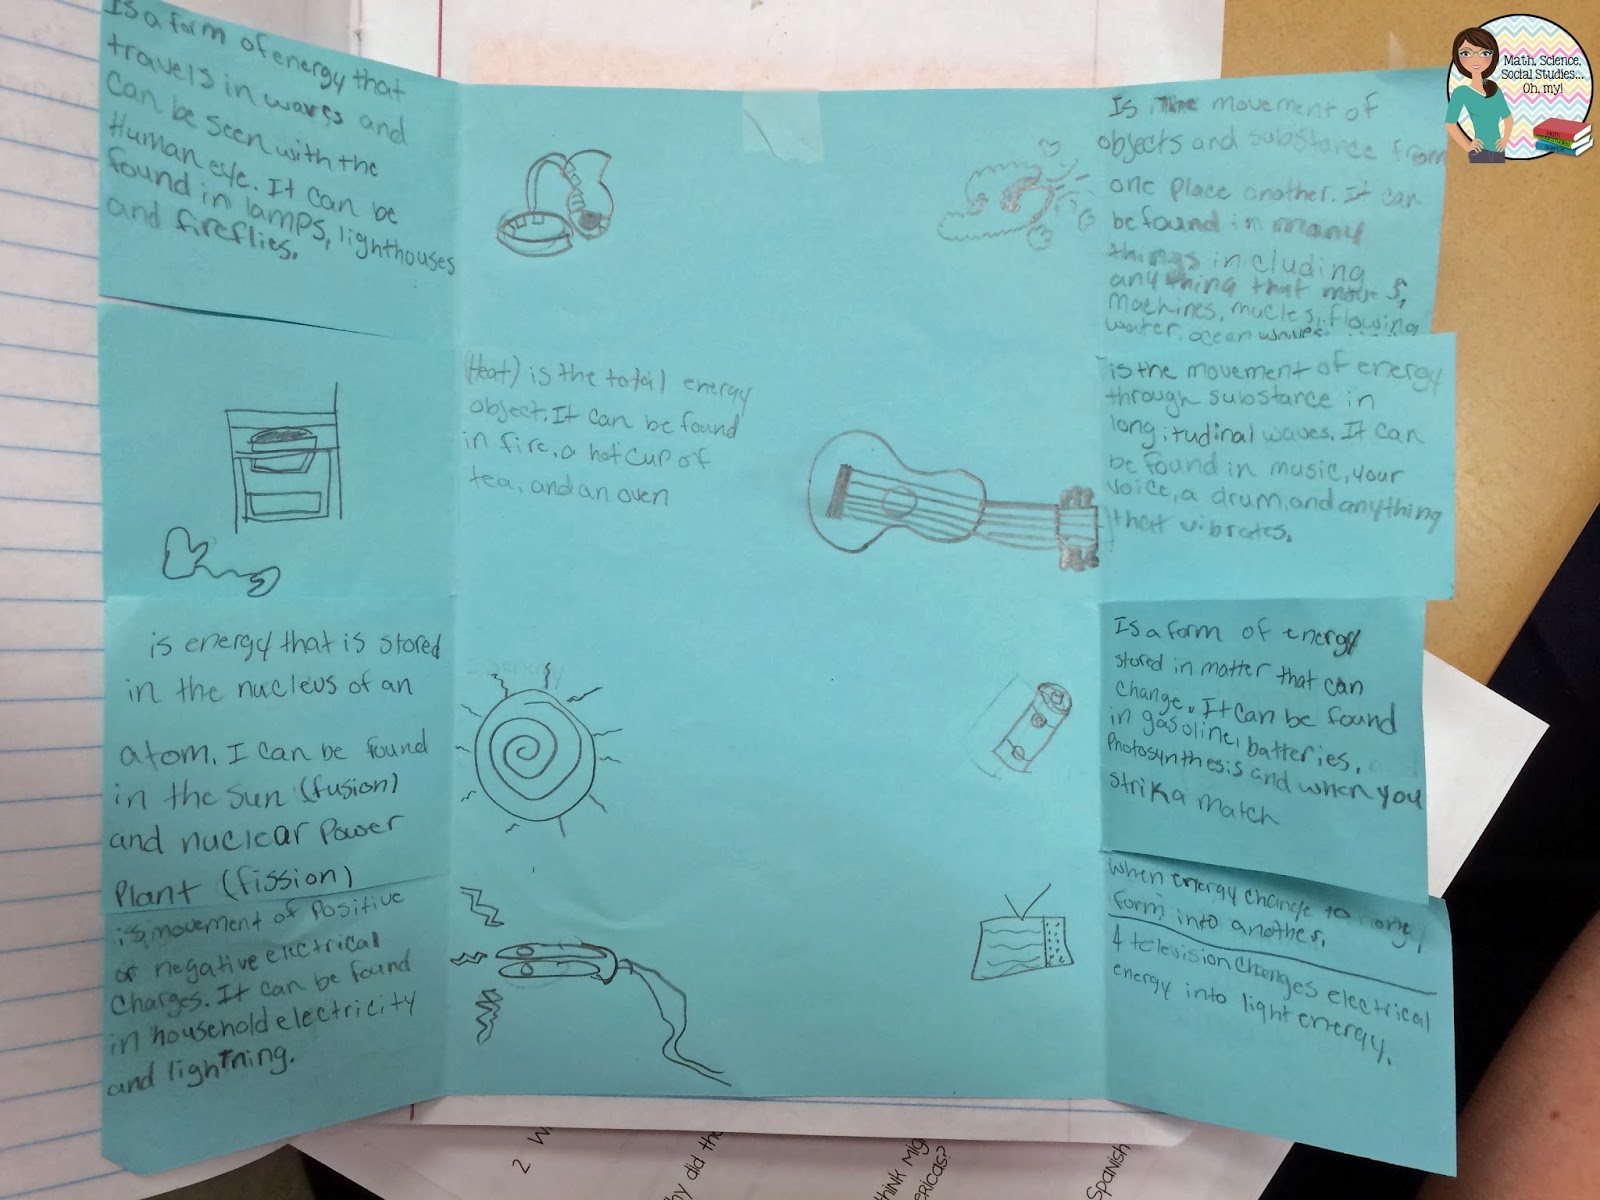 Is a form of energy that
travels in waves and
can be seen with the
Human eye. It can be
found in lamps, lighthouses
and fireflies.
(Heat) is the total energy
object. It can be found
in fire, a hot cup of
tea, and an oven
is energy that is stored
in the nucleus of an
atom. I can be found
in the sun (fusion)
and nuclear Power
Plant (fission)
is movement of Positive
or negative electrical
Charges. It can be found
in household electricity
and lightning.
Is the movement of
objects and substance from
one place another. It can
be found in many
things including
anything that moves,
machines, mucles, flowing
water, ocean waves
is the movement of energy
through substance in
longitudinal waves. It can
be found in music, your
voice, a drum, and anything
that vibrates.
Is a form of energy
stored in matter that can
change. It can be found
in gasoline, batteries,
Photosynthesis and when you
strika match
when energy change to
form into another.
A television changes electrical
energy into light energy.
Math, Science,
Social Studies...
Oh, my!
Math
Science
2 W
hy did th
think Mig
ericas?
Spanish